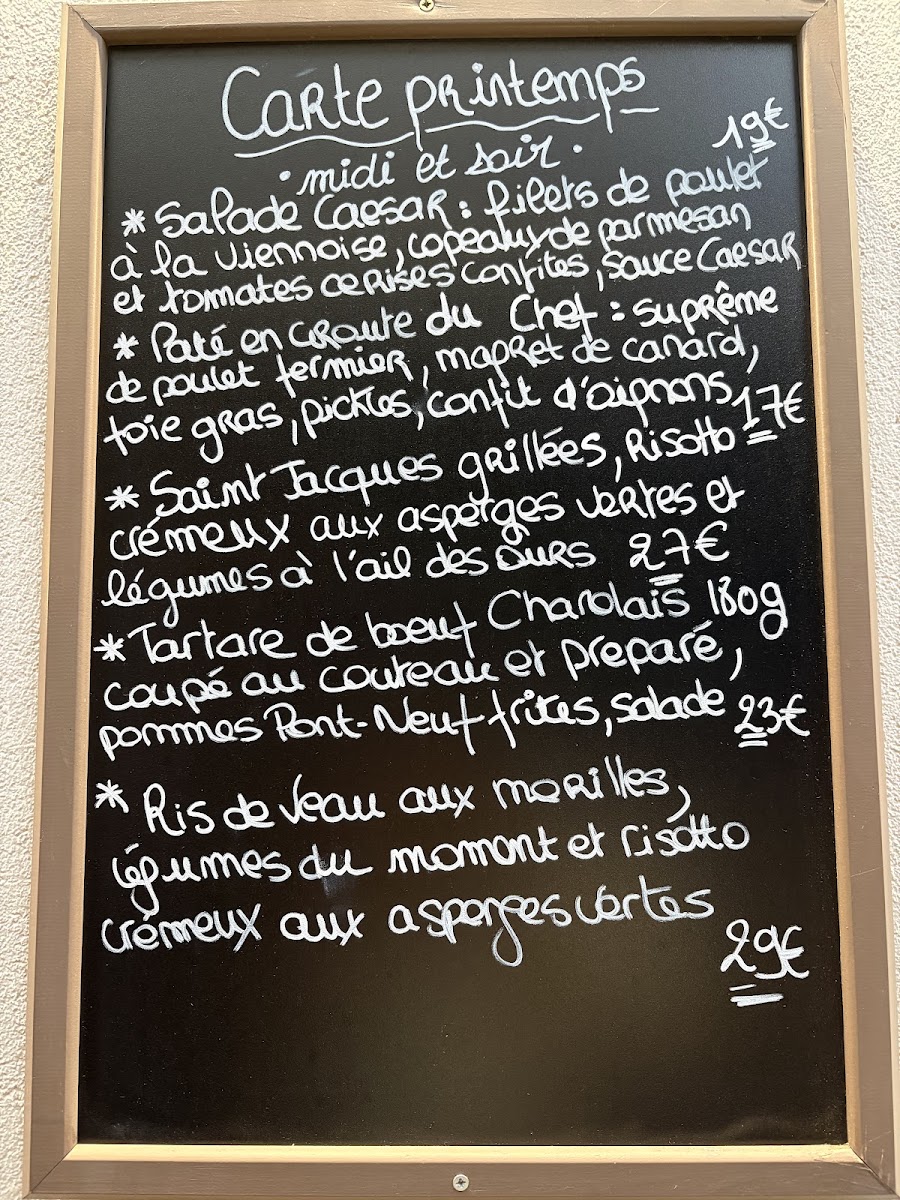 Carte printemps
• midi et soir •
19€
* Salade Caesar : filets de poulet
à la viennoise, copeaux de parmesan
et tomates cerises confites, sauce Caesar
* Paté en croute du Chef : suprême
de poulet fermier, magret de canard,
foie gras, pickles, confit d'oignons 17€
* Saint Jacques grillées, Risotto
crémeux aux asperges vertes et
légumes à l'ail des ours 27€
* Tartare de boeuf Charolais 180g
coupé au couteau et preparé,
pommes Pont-Neuf frites, salade 23€
* Ris de Veau aux morilles,
légumes du moment et risotto
crémeux aux asperges vertes
29€